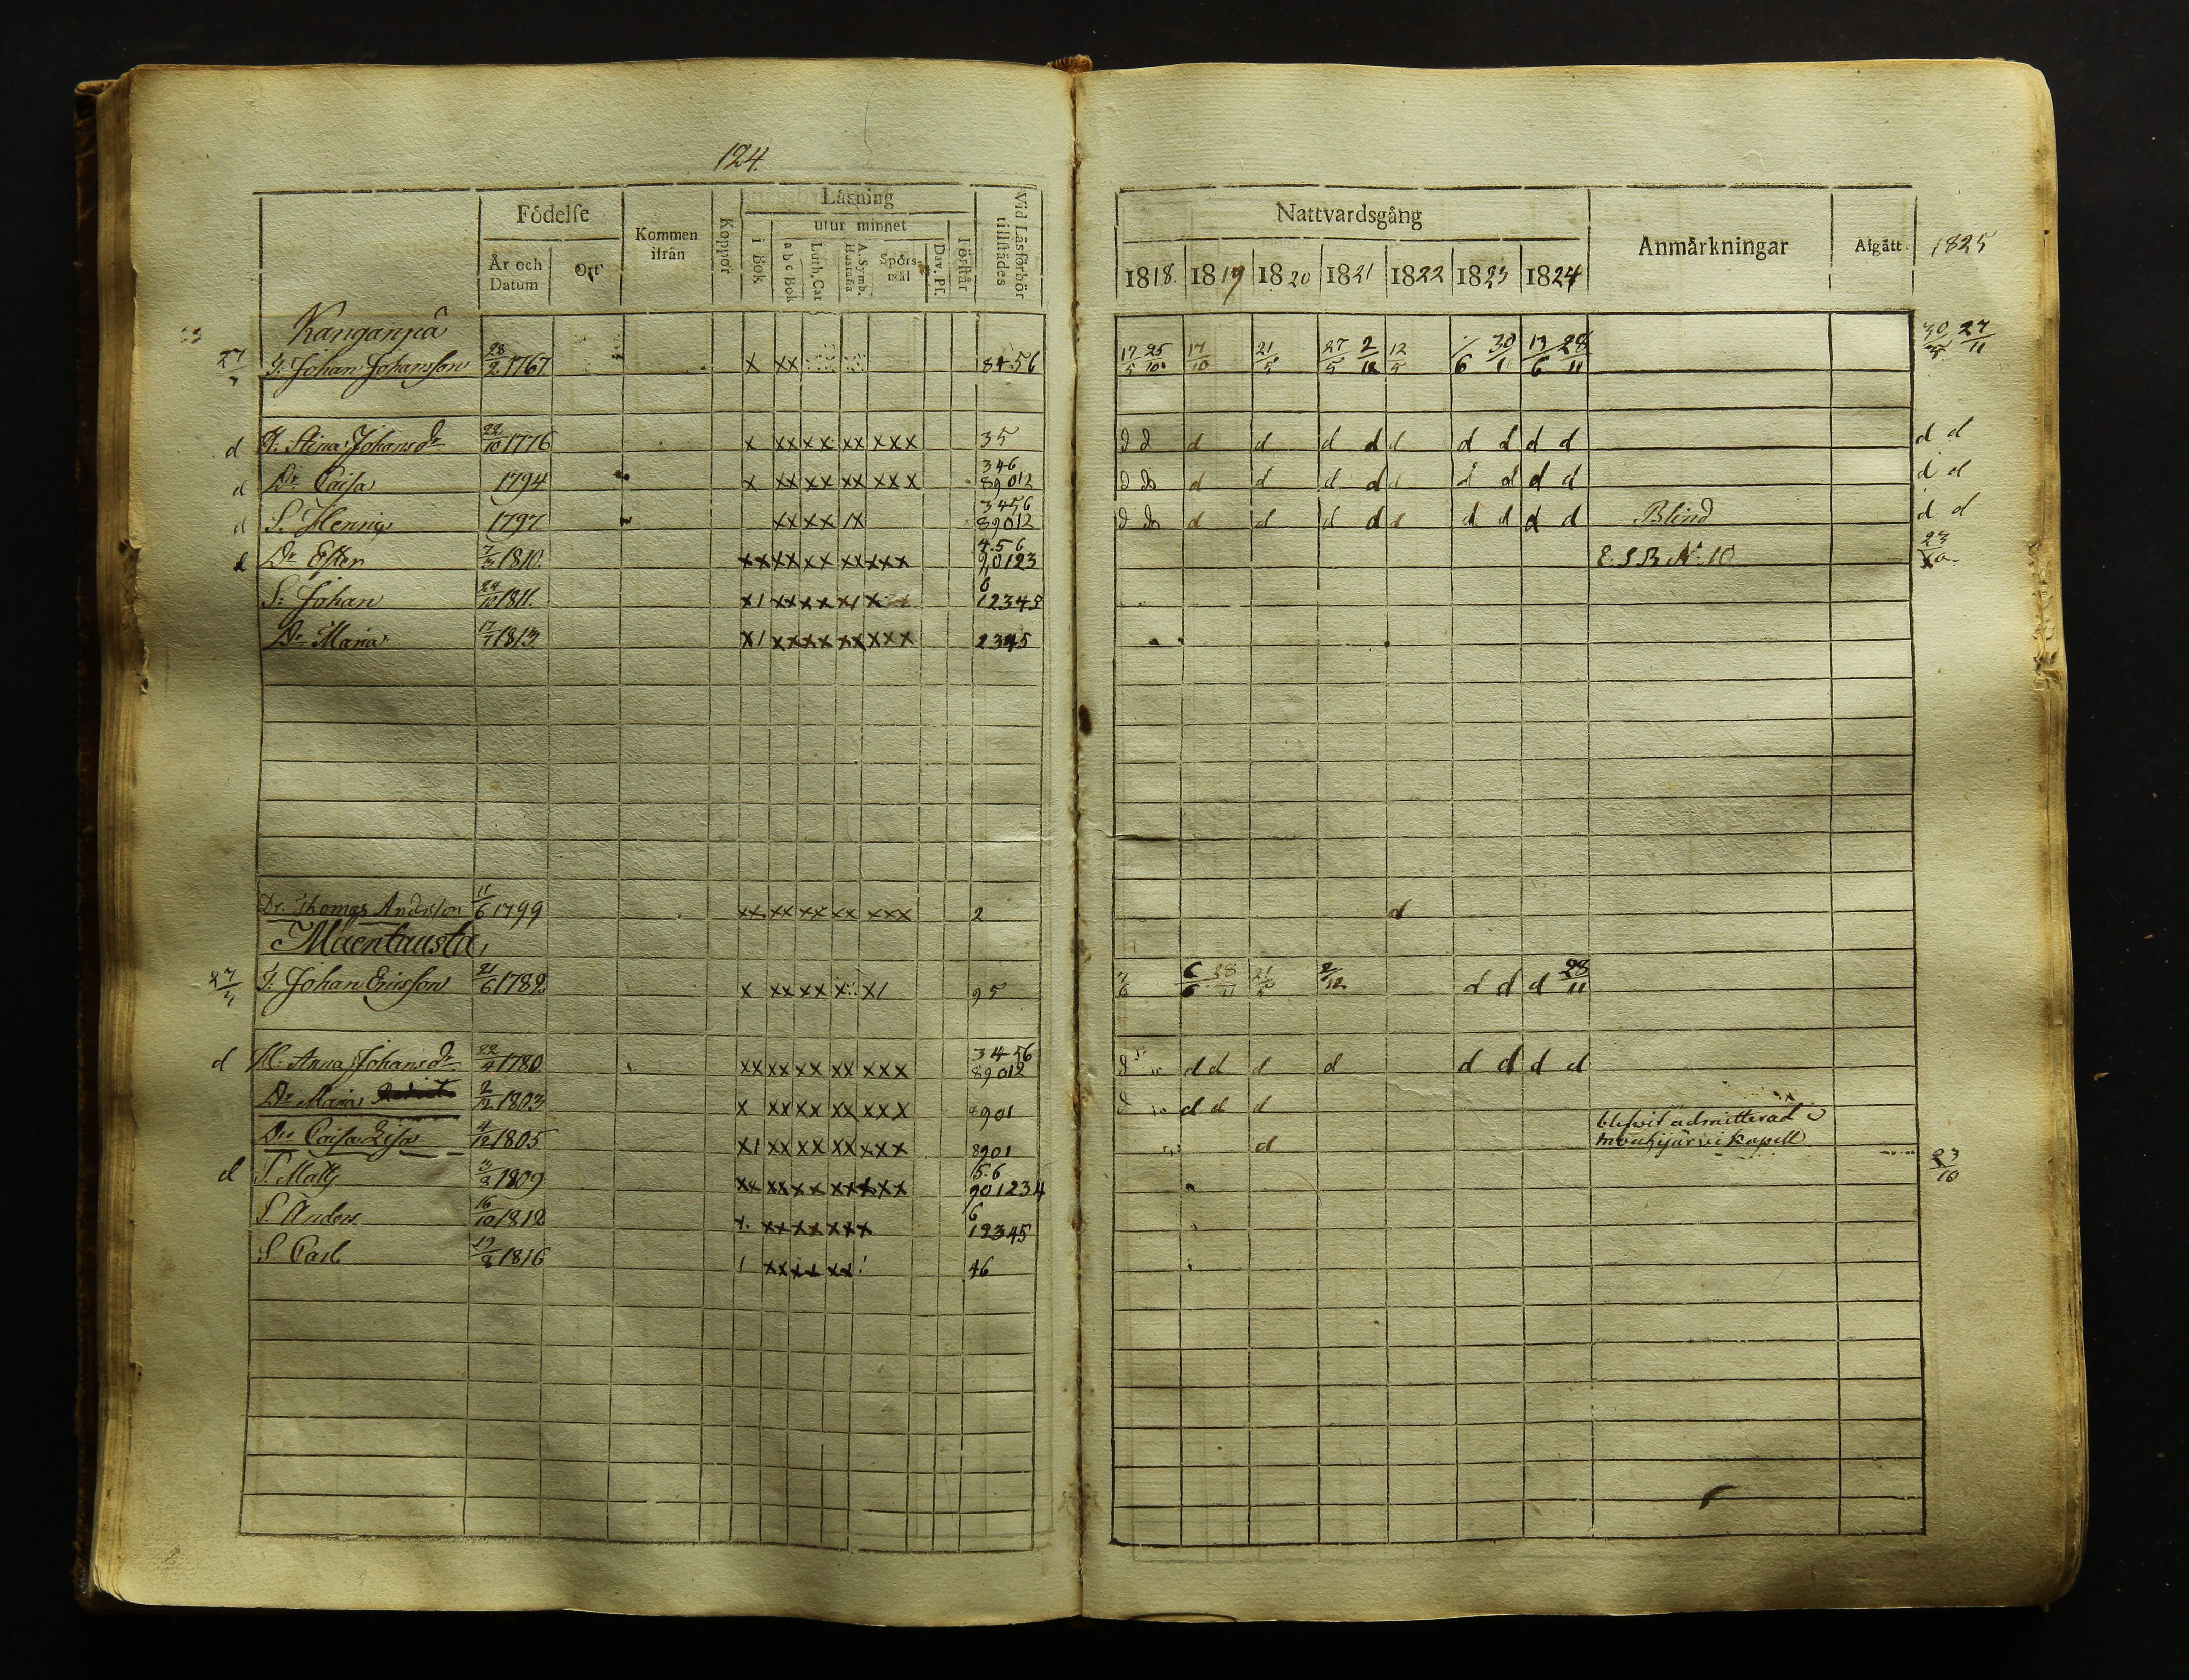 124.
Födelse
År och Datum
Ort
Kommen ifrån
Koppor
Läsning
i Bok
utur minnet
a b c Bok
Luth. Cat
A. Symb. Hustafla
Spörsmål
Dav. Pf.
Förstår
Vid Läsförhör tillstädes
Nattvardsgång
1818. 1819 1820 1821 1822 1823 1824
Anmärkningar
Afgått
1825
Kanganpä
Johan Johansson 28/2 1767 x xx 8456 17/5 25/10 17/10 21/5 27/5 2/12 12/5 30/11 13/6 28/11 27/11
d H. Stina Johansdr 22/10 1776 x xx xx xx xxx 35 d d d d d d d d d d d d d
d Dr Caisa 1794 x xx xx xx xxx 346 89012 d d d d d d d d d d d d
d S. Henric 1797 xx xx 1x 3456 89012 d d d d d d d d d d Blind d d
d Dr Ester 7/3 1810. xx xx xx xx xxx 4.56 90123 E. S. B. No. 10 23/10
S. Johan 24/10 1811. x1 xx xx x1 x 6 12345
Dr Maria 17/7 1813 x1 xx xx xx xxx 2345
Dr. Thomas Andersson 11/6 1799 xx xx xx xx xxx 2 d
Mäentausta
Johan Ericsson 21/6 1782 x xx xx x x1 95 6/6 28/11 21/5 2/12 d d d 28/11
d H. Anna Johansdr 22/4 1780 xx xx xx xx xxx 3456 89012 d d d d d d d d d
Dr Maria 2/12 1803 x xx xx xx xxx 8901 d d d d
Dr Caisa Lisa 4/12 1805 x1 xx xx xx xxx 8901 d blifvit admitterad i
mouhijärvi kapell
d S. Matts 3/3 1809 xx xx xx xx xxx 5.6 901234 23/10
S. Anders 16/10 1812 x. xx xx xx x 6 12345
S. Carl 19/8 1816 1 xx xx xx ! 46